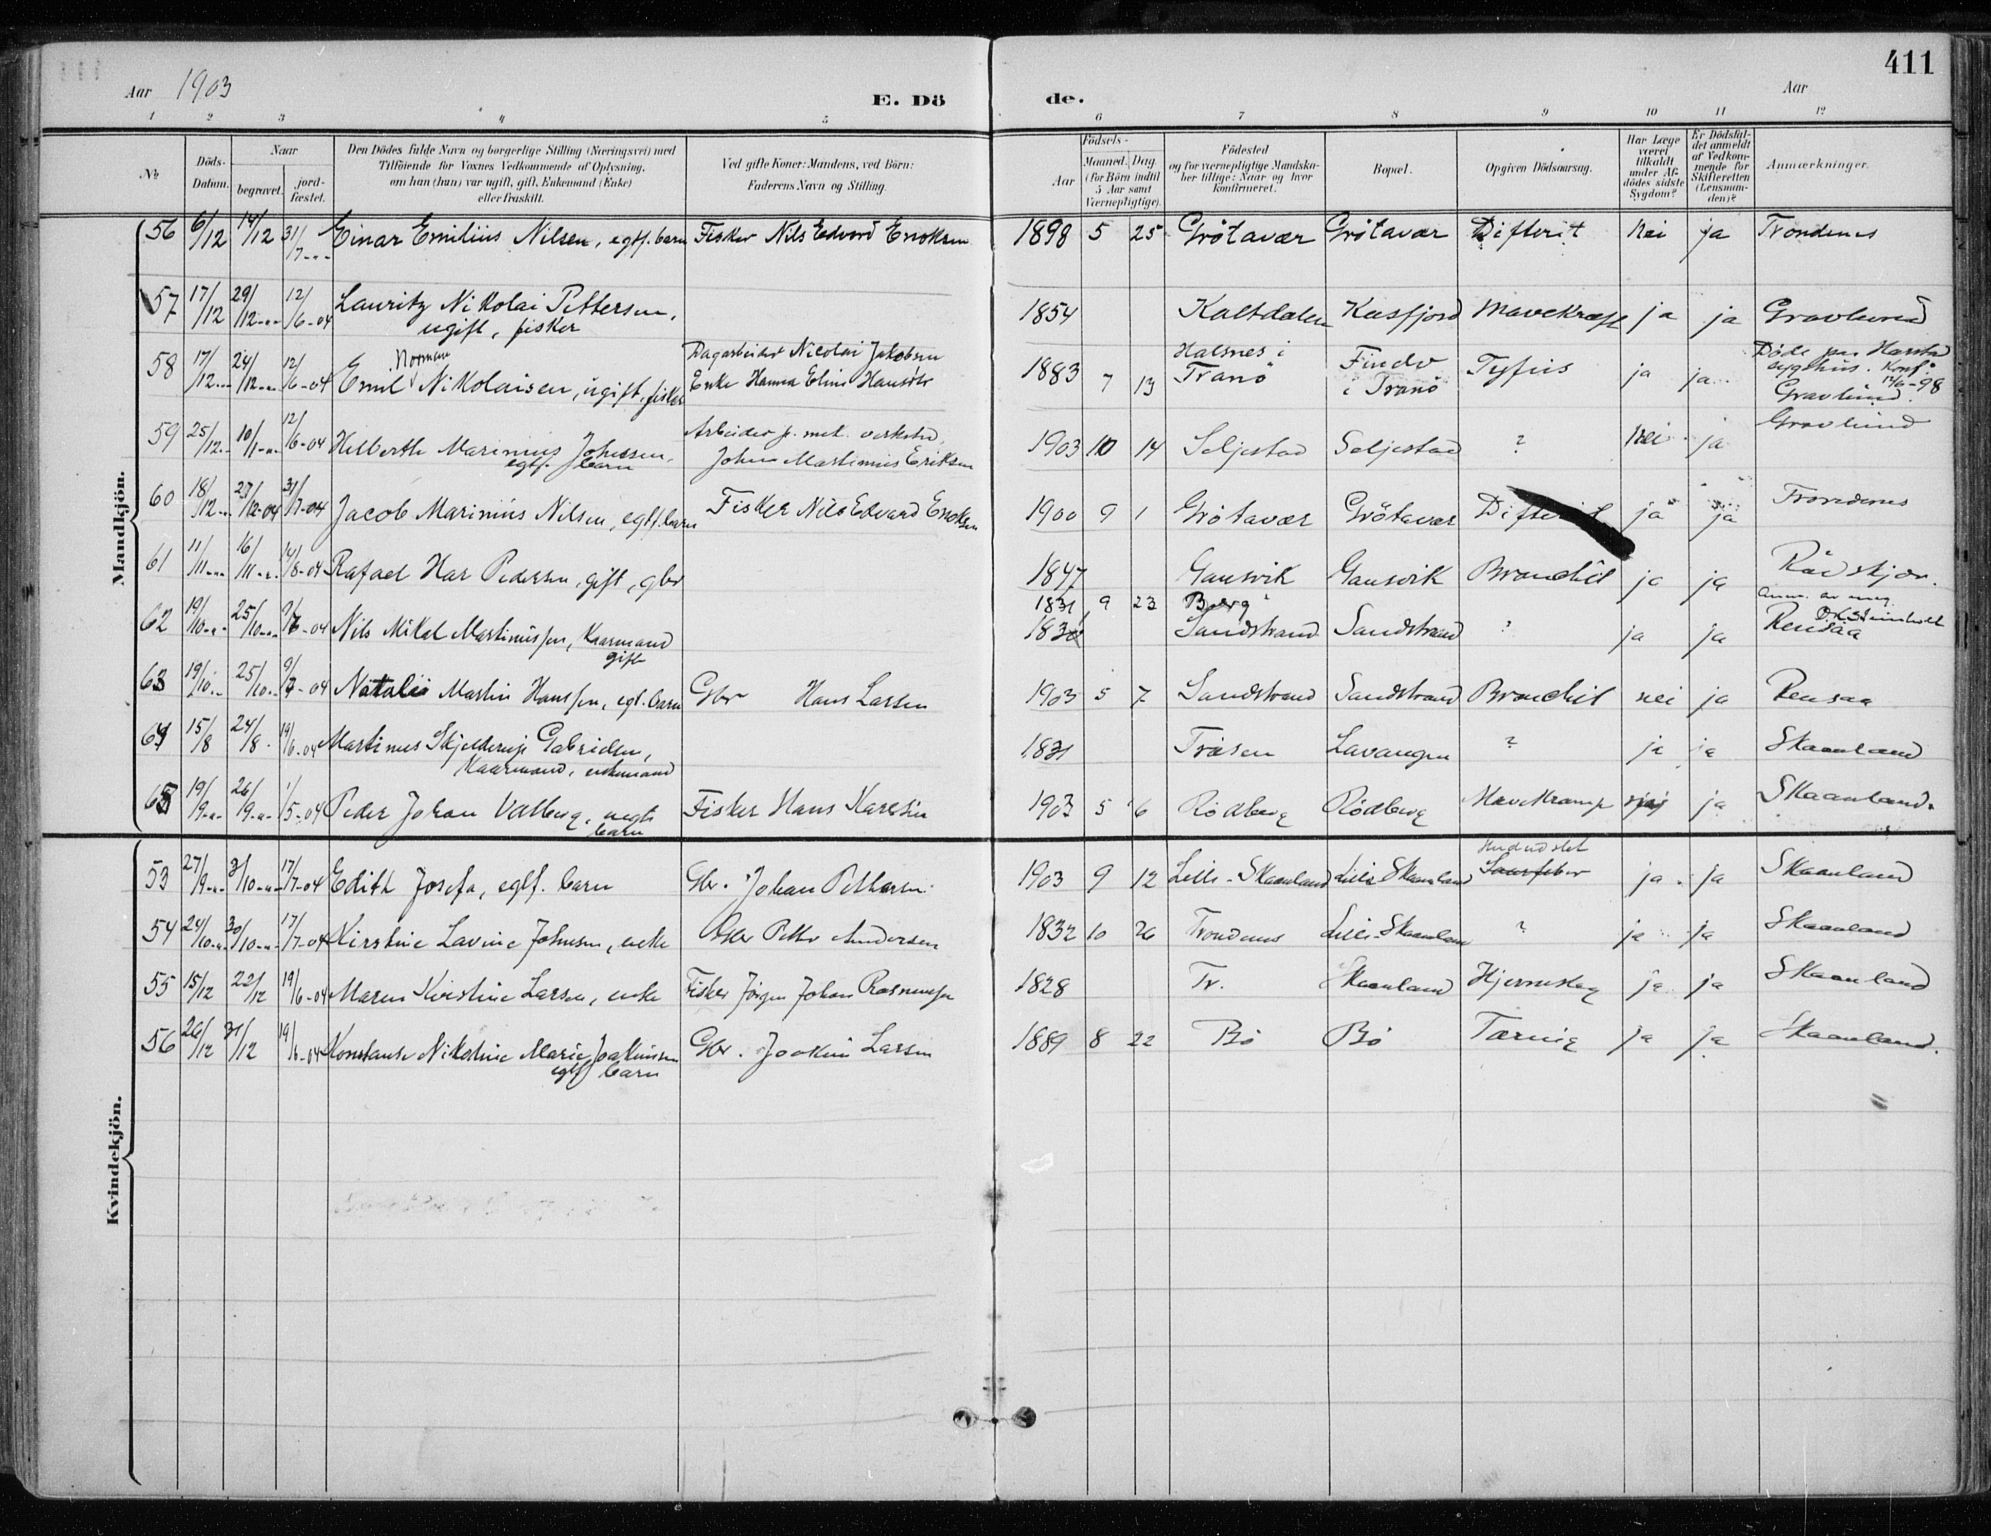 Aar 1903 E. Döde. Aar 411
1 2 3 4 5 6 7 8 9 10 11 12
№
Döds-Datum.
Naar
begravet.
jord-fæstet.
Den Dödes fulde Navn og borgerlige Stilling (Næringsvei) med
Tilföiende for Voxnes Vedkommende af Oplysning,
om han (hun) var ugift, gift, Enkemand (Enke)
eller fraskilt.
Ved gifte Koner: Mandens, ved Börn:
Faderens Navn og Stilling.
Födsels-
Aar
Maaned. Dag
(for Börn indtil
5 Aar samt
Værnepligtige).
Födested
og for værnepligtige Mandska-
ber tillige: Naar og hvor
konfirmeret.
Bopæl.
Opgiven Dödsaarsag.
Har Læge
været
tilkaldt
under Af-
dödes sidste
Sygdom?
Er Dödsfal-
det anmeldt
af Vedkom-
mende for
Skifteretten
(Lensman-
den)?
Anmærkninger.
Mandkjön.
56 6/12 14/12 31/7 Einar Emilius Nilsen, egtf. barn Fisker Nils Edvard Enoksen 1898 5 25 Grötavær Grötavær Difterit Nei ja Trondenes
57 17/12 29/12 12/6-04 Lauritz Nikolai Pettersen, 1854 Kaltdalen Kasfjord Mavekræft ja ja Gravlund
ugift, fisker
58 17/12 24/12 12/6-04 Emil Norman Nikolaisen, ugift, fisker Dagarbeider Nicolai Jakobsen 1883 7 13 Halsnes i Tranö i Tranö Tyfus ja ja Döde paa Harstad
Enke Hanna Eline Hansdtr sygehus. Konf. -98
Gravlund
59 25/12 10/1 12/6-04 Helberth Marinius Johnsen, Arbeider p. mek. verksted, 1903 10 14 Seljestad Seljestad ? Nei ja Gravlund
egtf. barn John Martinius Eriksen
60 18/12 27/12-04 31/7-04 Jacob Marinius Nilsen, egtf. barn Fisker Nils Edvard Enoksen 1900 9 1 Grötavær Grötavær Difterit ja ja Trondenes
61 11/11 16/11 14/8-04 Rafael Har Pedersen, gift, gbr 1847 Gausvik Gausvik Bronchit ja ja
62 19/10 25/10 Nils Mikal Martinussen, Kaarmand 1831 9 23 Berg
gift 1830 Sandstrand Sandstrand ? ja ja Rensaa
63 19/10 25/10 9/7-04 Natalie Martin Hanssen, egt. barn Gbr Hans Larsen 1903 5 7 Sandstrand Sandstrand Bronchit nei ja Rensaa
64 15/8 24/8 19/6-04 Martinus Skjelderup Gabrielsen, 1831 Trasen Lavangen ? ja ja Skaanland
Kaarmand, enkemand
65 19/9 26/9 1/5-04 Peder Johan Valberg, uegte Fisker Hans Karelsen 1903 5 6 Rödberg Rödberg Mavekrampe ja Skaanland.
barn
Kvindekjön.
53 27/9 3/10 17/7-04 Edith Josefa, egtf. barn Gbr. Johan Pettersen 1903 9 12 Lille-Skaanland Lille Skaanland ja ja Skaanland
54 24/10 30/10 17/7-04 Kirstine Lavine Johnsen, enke Gbr Petter Andersen 1832 10 26 Trondenes Lille-Skaanland ? ja ja Skaanland
55 15/12 22/12 19/6-04 Maren Kirstine Larsen, enke Fisker Jörgen Johan Rasmussen 1828 Tr. Skaanland Hjerneslag ja ja Skaanland
56 26/12 31/12 19/6-04 Konstanse Nikoline Marie Joakimsen Gbr. Joakim Larsen 1889 8 22 Bö Bö Tæring ja ja Skaanland.
egtf barn